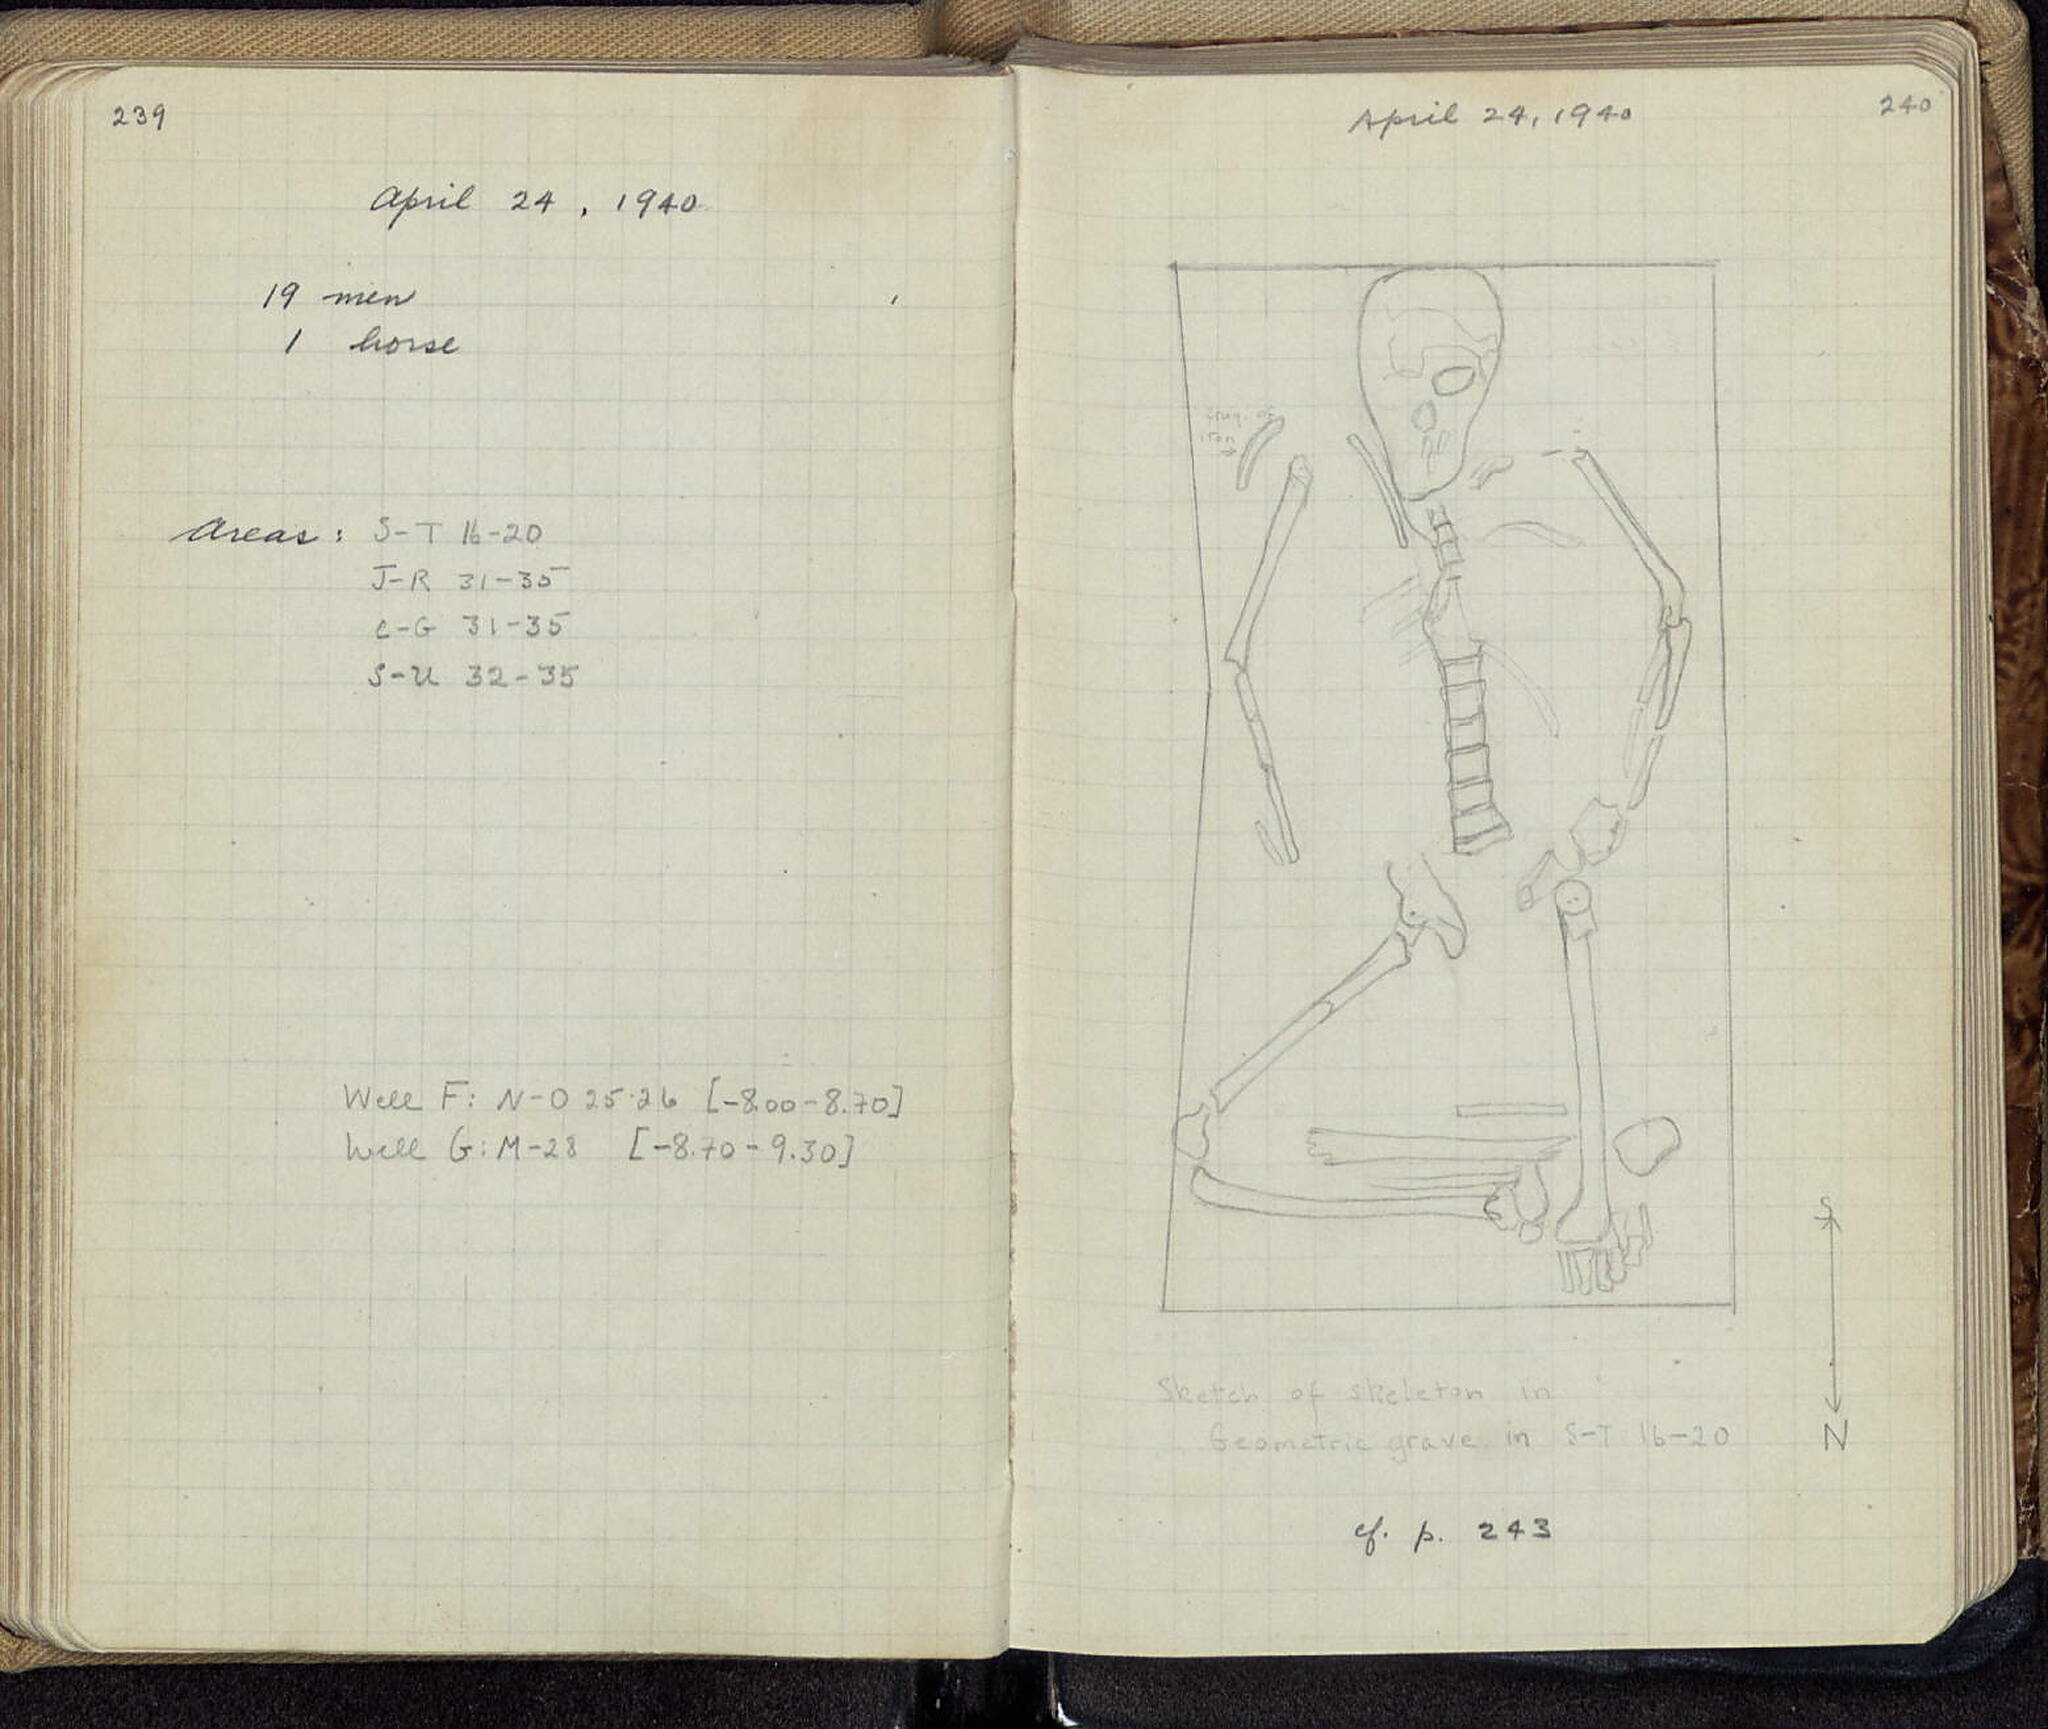 239
April 24, 1940
19 men
1 horse
Areas: S-T 16-20
J-R 31-35
C-G 31-35
S-U 32-35
Well F: N-O 25-26 [-8.00-8.70]
Well G: M-28 [-8.70-9.30]
April 24, 1940
240
frag. of
iron
S
N
Sketch of skeleton in
Geometric grave in S-T 16-20
cf. p. 243